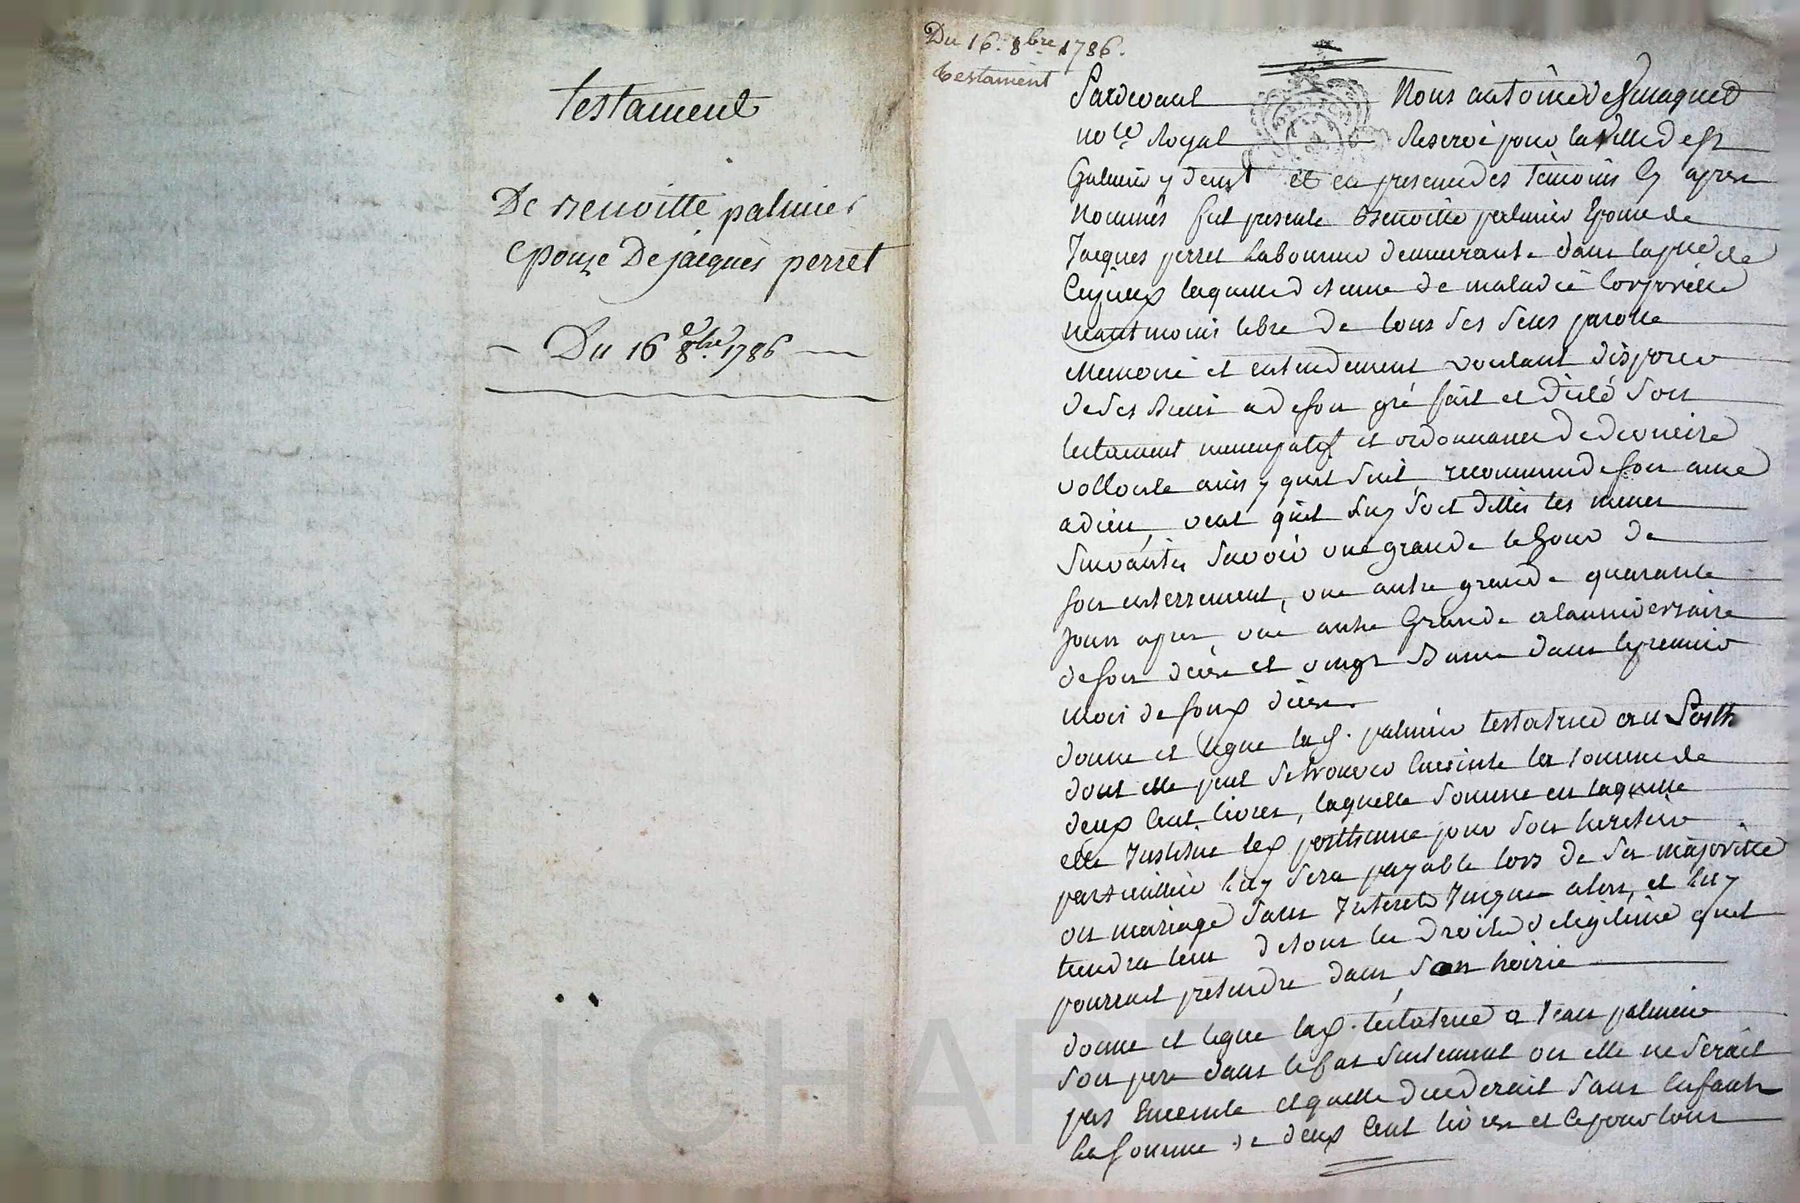 testament
De Benoitte palmier
epouze De jacques perret
Du 16 8bre 1786
Du 16. 8bre 1786.
testament
Pardevant Nous antoine
no.re Royal Reservé pour la ville de st
Galmier y deux et en presence des témoins cy apres
Nommés fut presente Benoitte palmier Epouse de
Jacques perret Laboureur demeurante dans la p.sse de
laquelle detenue de maladie Corporelle
neantmoins libre de tous ses sens parolle
Memoire et entendement voulant disposer
de ses Biens a de son gré fait et dicté son
testament nuncupatif et ordonnance de derniere
vollonte ainsy quil suit, recommande son ame
a dieu, veut quil luy soit dittes les messes
suivantes savoir une grande le jour de
son enterrement, une autre grande quarante
jours apres une autre Grande a lanniversaire
de son deces et vingt Basses dans le premier
mois de son deces.
donne et legue lad. palmier testatrice au Posth
dont elle peut se trouver Enceinte la somme de
deux Cent livres, laquelle somme en laquelle
elle Institue led posthume pour son heritier
particulier luy sera payable lors de sa majoritté
ou mariage sans Interets Jusques alors, et luy
tiendra lieu de tous les droits de légitime quil
pourrait prétendre dans son hoirie
donne et legue lad. testatrice a Jean palmier
son pere dans le cas seulement ou elle ne serait
pas Enceinte et quelle decederait sans Enfants
la somme de deux Cent livres et ce pour tous